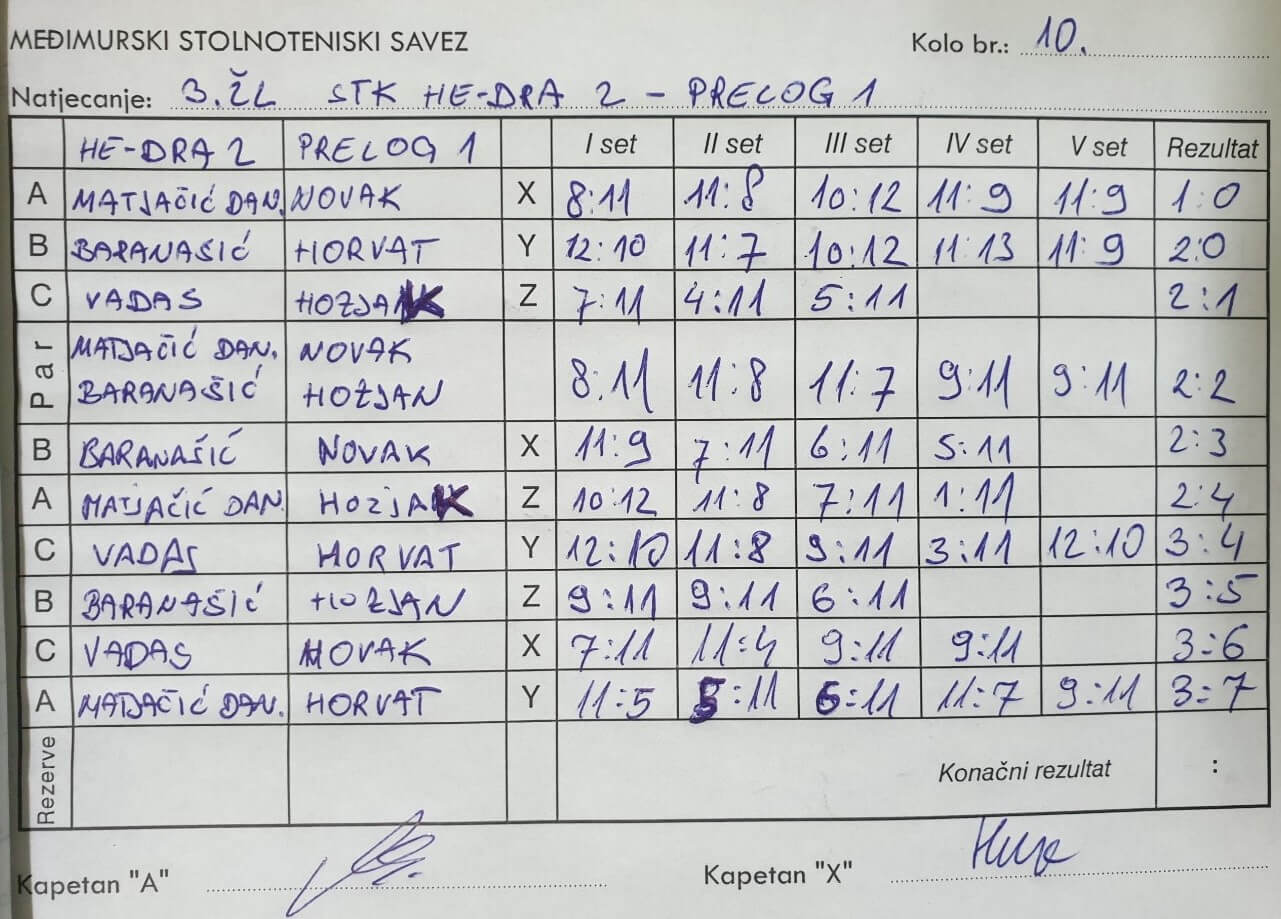 MEĐIMURSKI STOLNOTENISKI SAVEZ Kolo br.: 10.
Natjecanje: 3.ŽL STK HE-DRA 2 - PRELOG 1
HE-DRA 2 PRELOG 1 I set II set III set IV set V set Rezultat
A MATJAČIĆ DAN. NOVAK X 8:11 11:8 10:12 11:9 11:9 1:0
B BARANAŠIĆ HORVAT Y 12:10 11:7 10:12 11:13 11:9 2:0
C VADAS Z 7:11 4:11 5:11 2:1
Par MATJAČIĆ DAN. NOVAK
BARANAŠIĆ HOŽJAN 8:11 11:8 11:7 9:11 9:11 2:2
B BARANAŠIĆ NOVAK X 11:9 7:11 6:11 5:11 2:3
A MATJAČIĆ DAN. Z 10:12 11:8 7:11 1:11 2:4
C VADAS HORVAT Y 12:10 11:8 9:11 3:11 12:10 3:4
B BARANAŠIĆ HOŽJAN Z 9:11 9:11 6:11 3:5
C VADAS NOVAK X 7:11 11:4 9:11 9:11 3:6
A MATJAČIĆ DAN. HORVAT Y 11:5 5:11 6:11 11:7 9:11 3:7
Rezerve Konačni rezultat :
Kapetan "A" Kapetan "X"